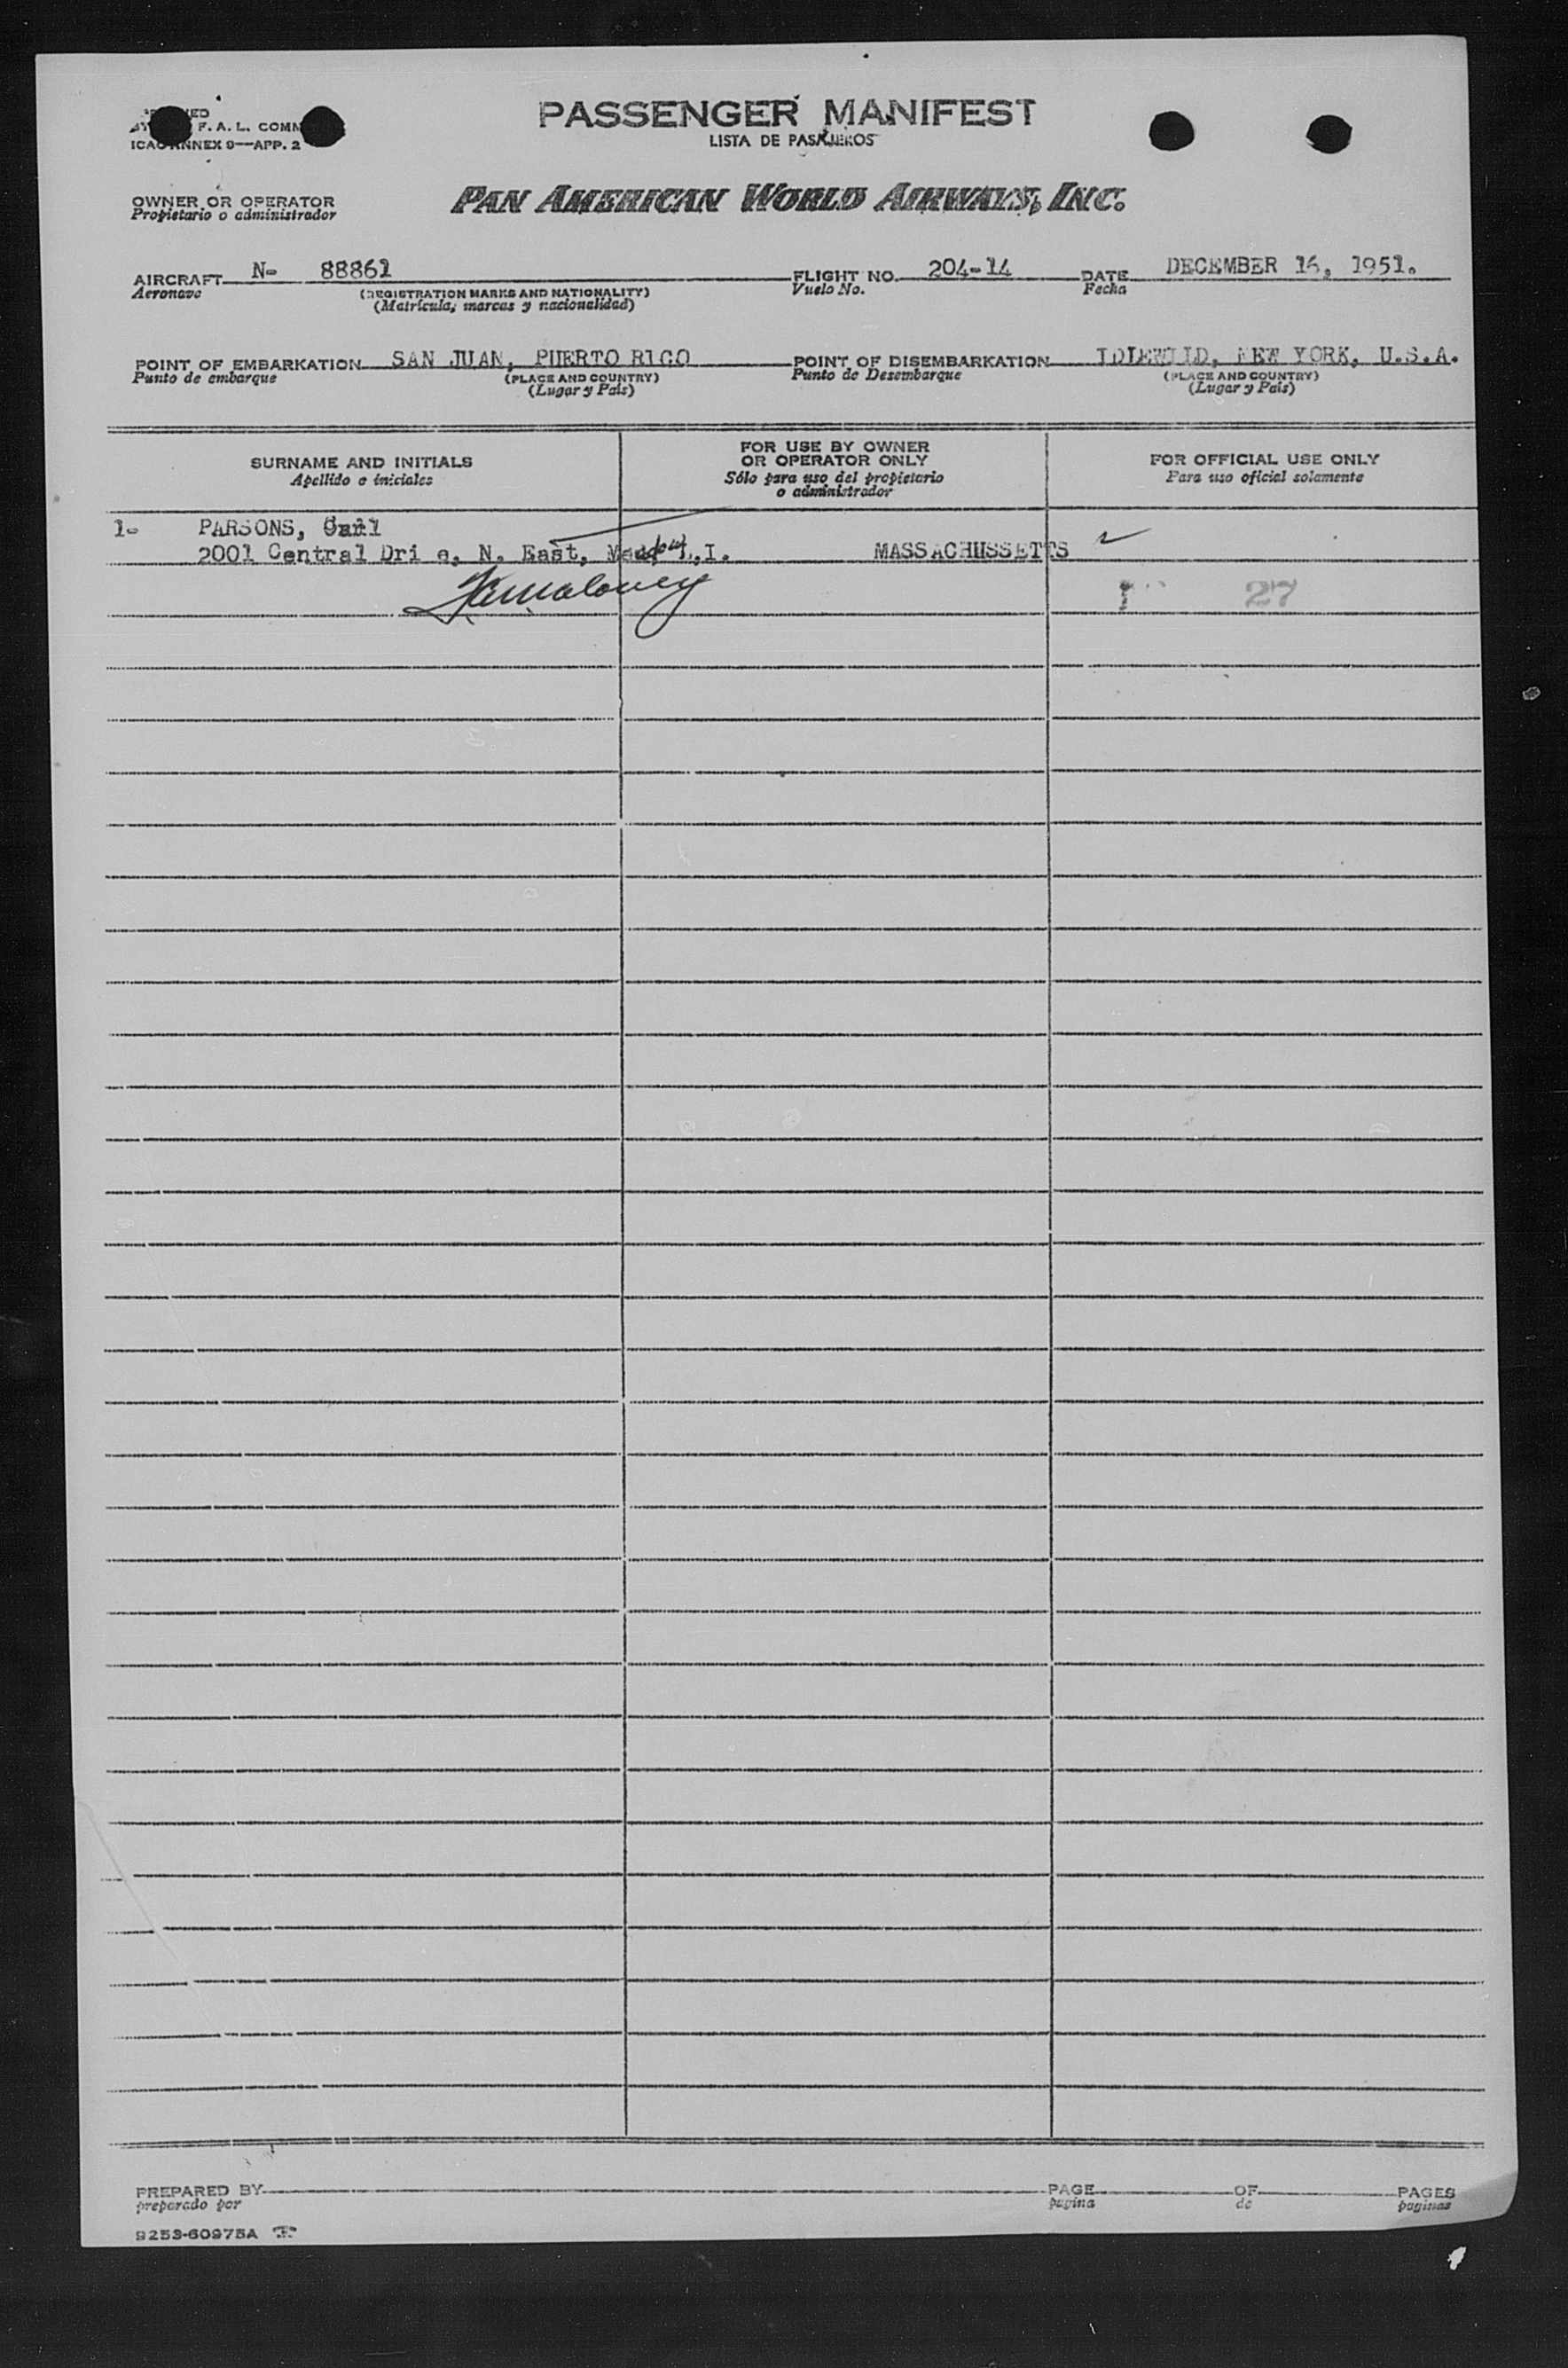 PASSENGER MANIFEST
LISTA DE PASAJEROS
F. A. L. COMM
ICAO ANNEX 9—APP. 2
OWNER OR OPERATOR
Propietario o administrador
PAN AMERICAN WORLD AIRWAYS, INC.
AIRCRAFT N- 88861 FLIGHT NO. 204-14 DATE DECEMBER 16, 1951.
Aeronave (REGISTRATION MARKS AND NATIONALITY) Vuelo No. Fecha
(Matrícula, marcas y nacionalidad)
POINT OF EMBARKATION SAN JUAN, PUERTO RICO POINT OF DISEMBARKATION IDLEWILD, NEW YORK, U.S.A.
Punto de embarque (PLACE AND COUNTRY) Punto de Desembarque (PLACE AND COUNTRY)
(Lugar y País) (Lugar y País)
SURNAME AND INITIALS
Apellido e iniciales
FOR USE BY OWNER
OR OPERATOR ONLY
Sólo para uso del propietario
o administrador
FOR OFFICIAL USE ONLY
Para uso oficial solamente
1- PARSONS, Carl
2001 Central Dri e, N. East, L.I. MASSACHUSSETTS
27
PREPARED BY PAGE OF PAGES
preparado por pagina de paginas
9253-60975A